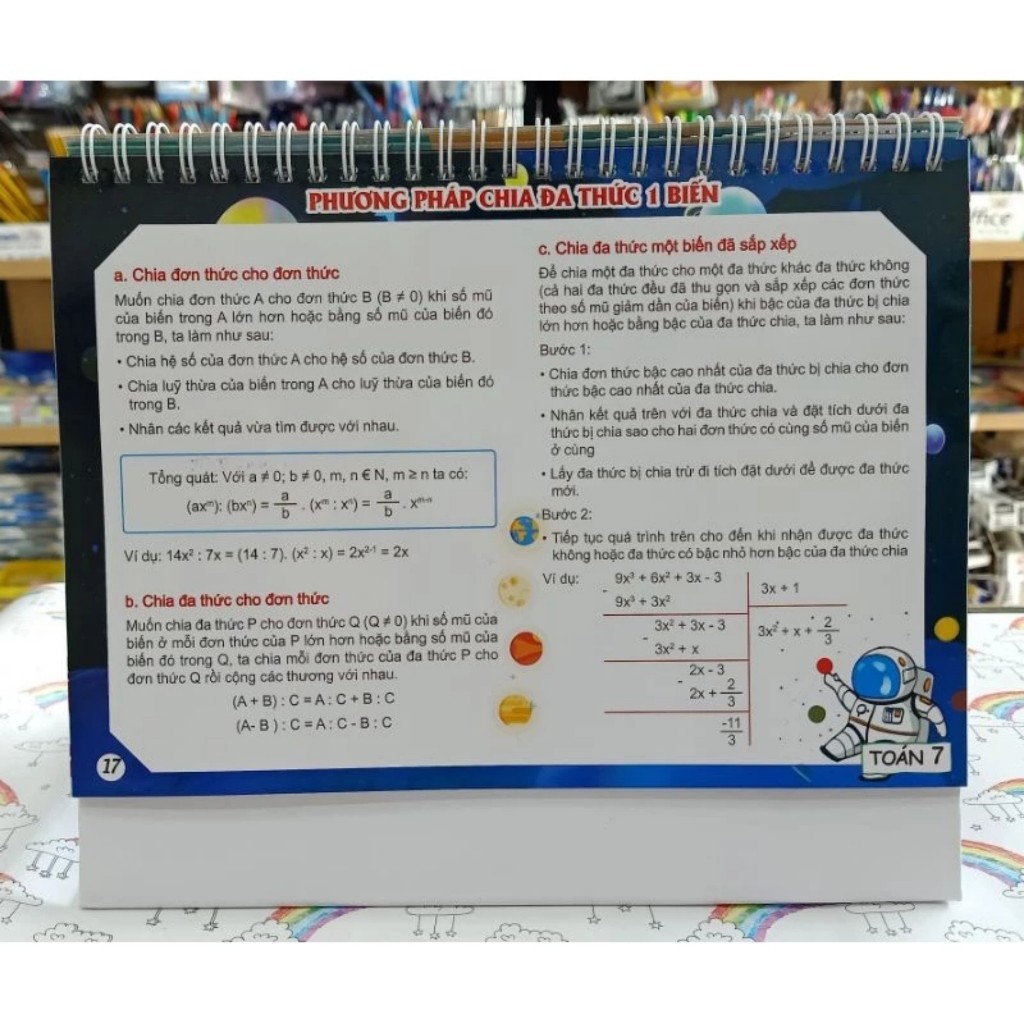 PHƯƠNG PHÁP CHIA ĐA THỨC 1 BIẾN
a. Chia đơn thức cho đơn thức
Muốn chia đơn thức A cho đơn thức B (B ≠ 0) khi số mũ
của biến trong A lớn hơn hoặc bằng số mũ của biến đó
trong B, ta làm như sau:
• Chia hệ số của đơn thức A cho hệ số của đơn thức B.
• Chia luỹ thừa của biến trong A cho luỹ thừa của biến đó
trong B.
• Nhân các kết quả vừa tìm được với nhau.
Tổng quát: Với a ≠ 0; b ≠ 0, m, n ∈ N, m ≥ n ta có:
(axᵐ): (bxⁿ) = a/b . (xᵐ : xⁿ) = a/b . xᵐ⁻ⁿ
Ví dụ: 14x² : 7x = (14 : 7). (x² : x) = 2x²⁻¹ = 2x
b. Chia đa thức cho đơn thức
Muốn chia đa thức P cho đơn thức Q (Q ≠ 0) khi số mũ của
biến ở mỗi đơn thức của P lớn hơn hoặc bằng số mũ của
biến đó trong Q, ta chia mỗi đơn thức của đa thức P cho
đơn thức Q rồi cộng các thương với nhau.
(A + B) : C = A : C + B : C
(A- B ) : C = A : C - B : C
17
c. Chia đa thức một biến đã sắp xếp
Để chia một đa thức cho một đa thức khác đa thức không
(cả hai đa thức đều đã thu gọn và sắp xếp các đơn thức
theo số mũ giảm dần của biến) khi bậc của đa thức bị chia
lớn hơn hoặc bằng bậc của đa thức chia, ta làm như sau:
Bước 1:
• Chia đơn thức bậc cao nhất của đa thức bị chia cho đơn
thức bậc cao nhất của đa thức chia.
• Nhân kết quả trên với đa thức chia và đặt tích dưới đa
thức bị chia sao cho hai đơn thức có cùng số mũ của biến
ở cùng
• Lấy đa thức bị chia trừ đi tích đặt dưới để được đa thức
mới.
Bước 2:
• Tiếp tục quá trình trên cho đến khi nhận được đa thức
không hoặc đa thức có bậc nhỏ hơn bậc của đa thức chia
Ví dụ: 9x³ + 6x² + 3x - 3
3x + 1
- 9x³ + 3x²
3x² + 3x - 3
3x² + x + 2/3
- 3x² + x
2x - 3
- 2x + 2/3
-11/3
TOÁN 7
ffice